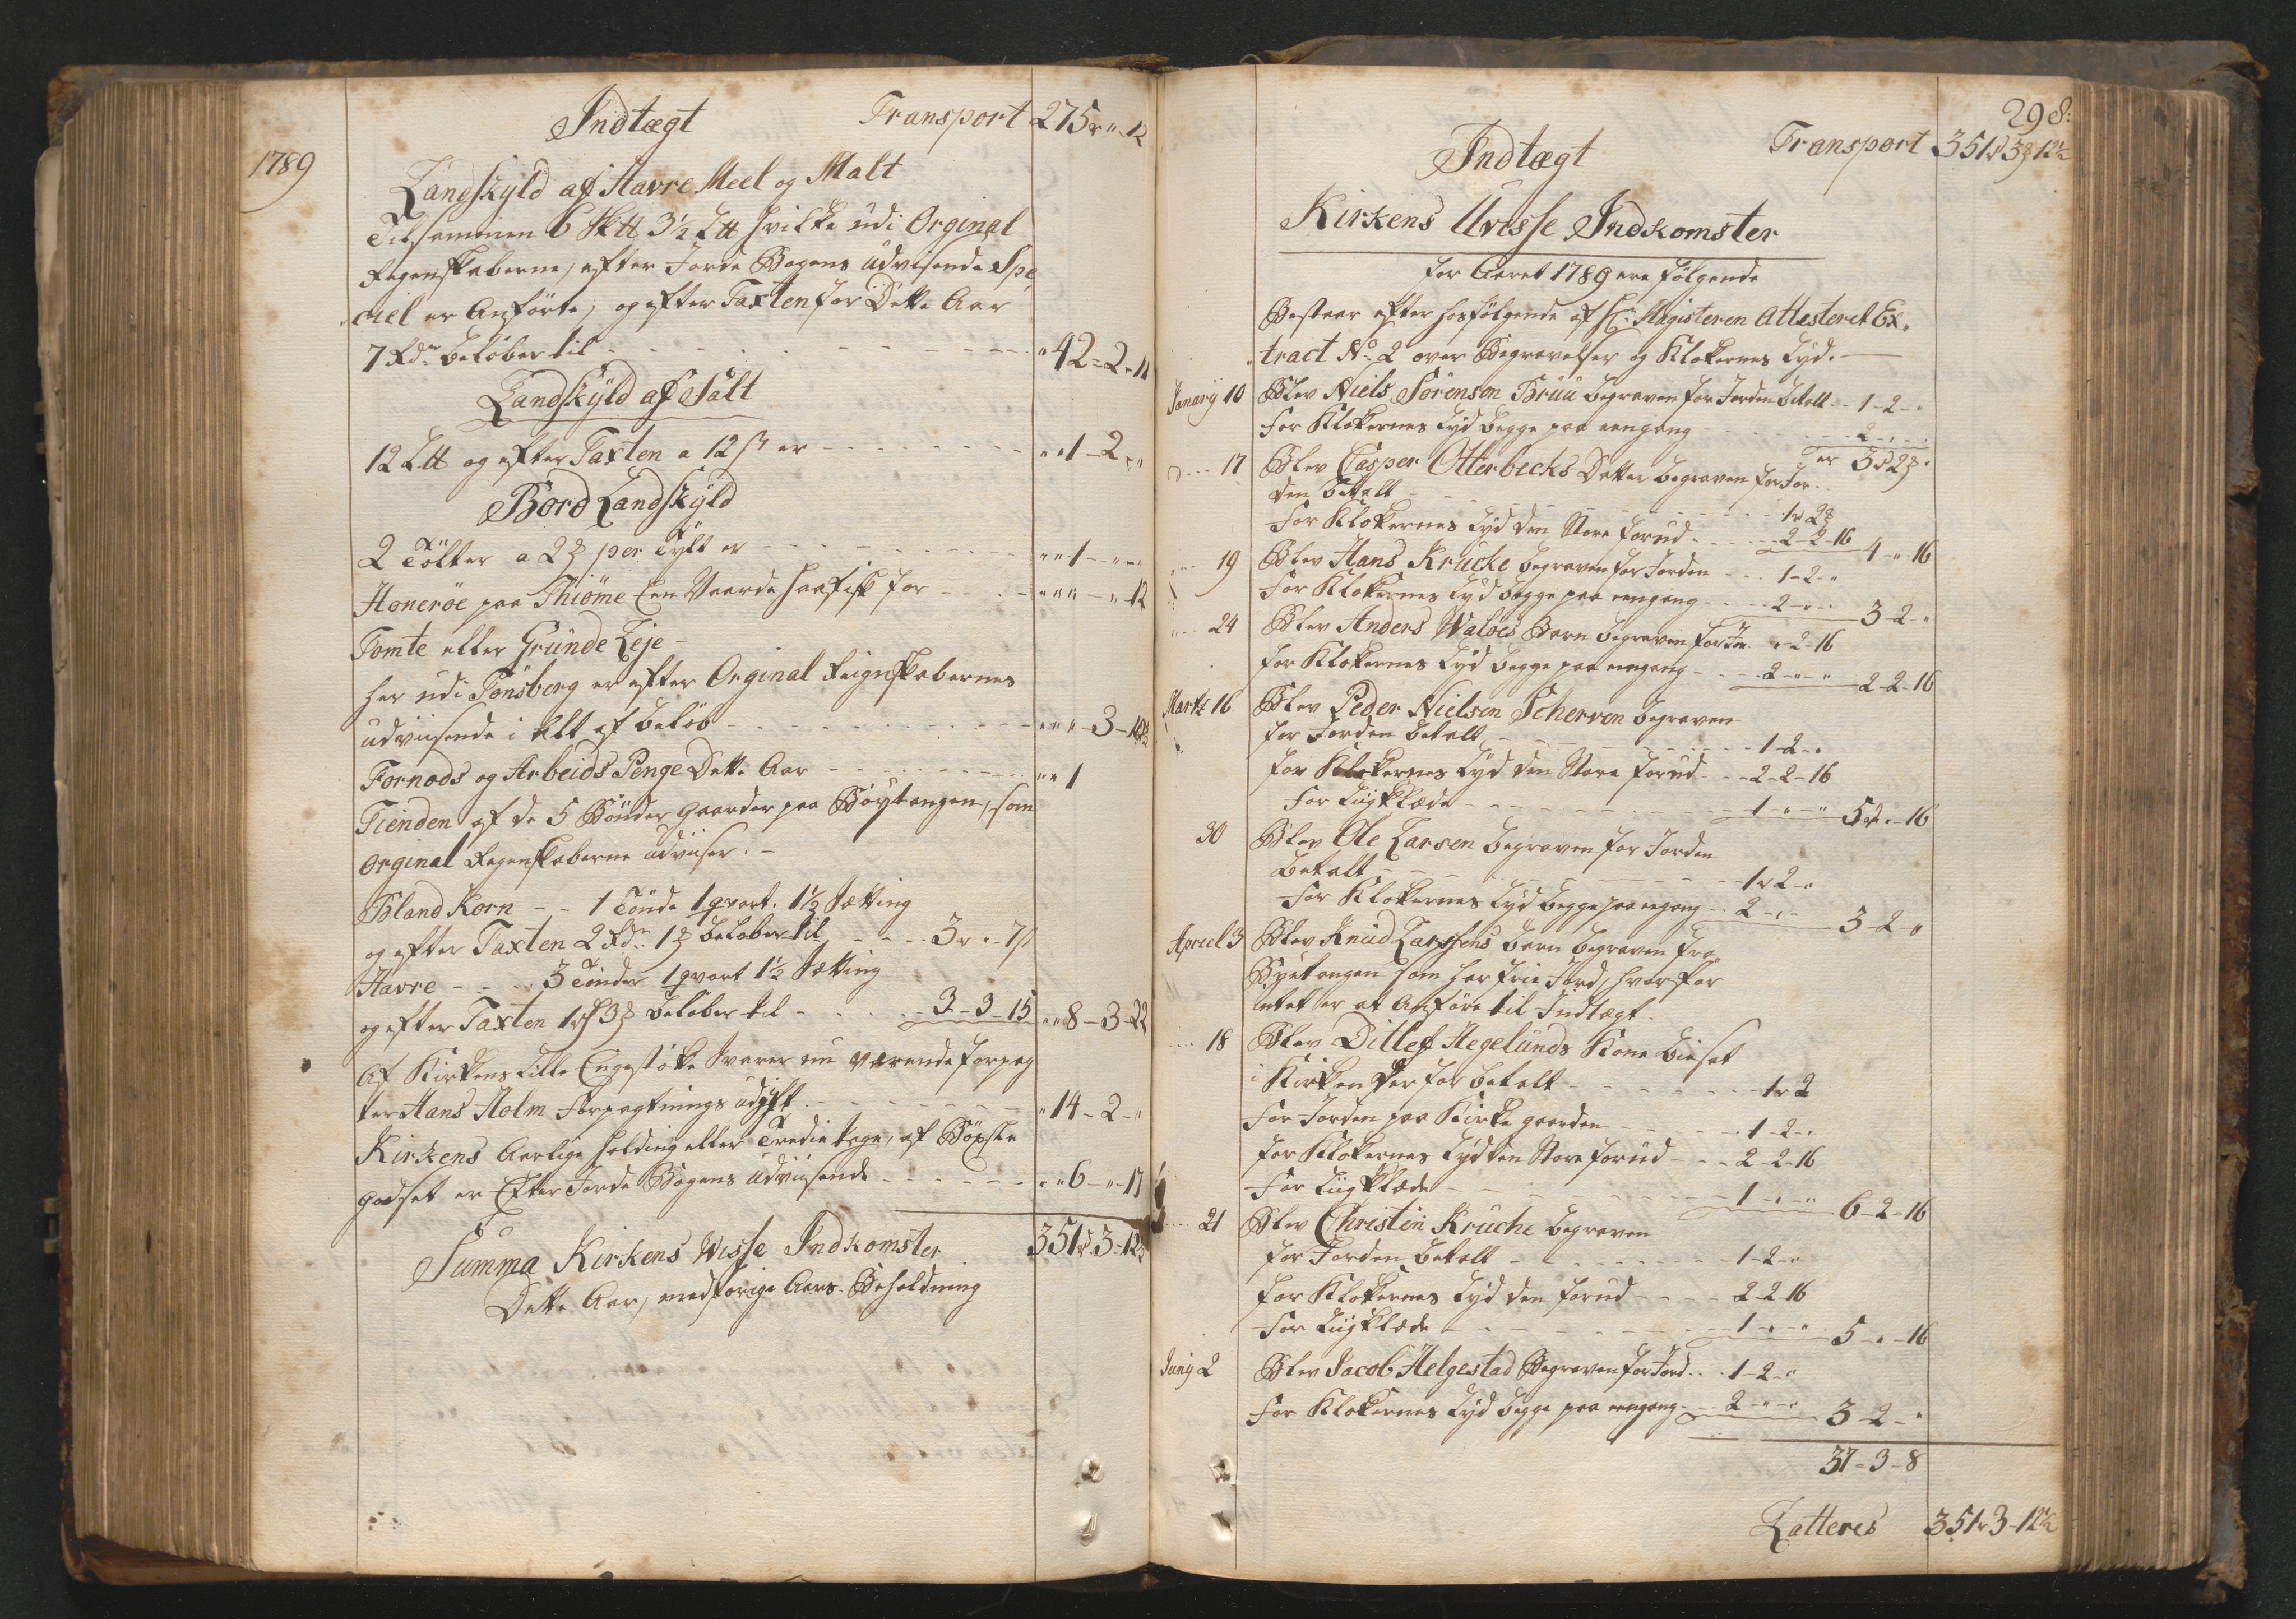 Indtægt Transport 275 r " 12
1789
Landskyld af Havre Meel og Malt
Tilsammen 6 Sktt 3½ Ltt hvilke udi Orginal
Regenskaberne, efter Jorde Bogens Udvisende Spe
ciel er Anførte, og efter Taxten for Dette Aar
7 Rdr beløber til " 42 - 2 - 11
Landskyld af Salt
12 Ltt og efter Taxten a 12 ß er " " 1 - 2 - "
Bord Landskyld
2 Tölter a 2 per Tylt er " " 1 - " - "
Honeröe paa Thiöme Een Vaarde Haafisk for " " " - " - 12
Tomte eller Grunde Leje -
her udi Tönsberg er efter Orginal Reignskabernes
udviisende i Alt af beløb " " " - 3 -
Fornods og Arbeids Penge Dette Aar " " 1
Tienden af de 5 Bönder gaarder paa Böytangen, som
Orginal Regenskaberne udviiser. -
Bland Korn - - 1 Tönde 1 qvart. 1½ Sætting
og efter Taxten 2 Rdr 1 beløber til 3 r " 7 ß
Havre - - - 3 Tönder 1 qvart 1½ Sætting
og efter Taxten 1 r 3 beløber til 3 - 3 - 15 " " 8 - 3 - 22
Af Kirkens Lille Engestöke Svarer nu værende forpag
ter Hans Holm Forpagtnings udgift " 14 - 2 - "
Kirkens Aarlige holding eller Tredie tage, af
godset er Efter Jorde Bogens Udviisende " " 6 - " - 17
Summa Kirkens Wisse Indkomster 351 r 3 - 12½
Dette Aar, med forige Aars Beholdning
298.
Indtægt Transport 351 r 3 12½
Kirkens Uvisse Indkomster
for Aaret 1789 ere følgende
Bestaar efter hosfølgende af Hr. Magisteren Attesteret Ex,
tract No 2 over Begravelser og Klokernes Lyd.
Janarij 10 Blev Niels Sörenson Bruu begraven for Jorden betalt 1 - 2 - "
For Klokernes Lyd begge paa eengang 2 - " - "
er 3 r 2 "
17 Blev Casper Otterbechs Datter begraven for Jor-
den betalt 1 r 2
For Klokkernes Lyd den Store forud 2 - 2 - 16 4 - " 16
19 Blev Hans Kruche begraven for Jorden 1 - 2 - "
For Klokernes Lyd begge paa eengang 2 - " - " 3 - 2 - "
24 Blev Anders Waloes Barn begraven for Jor. " - 2 - 16
for Klokernes Lyd begge paa eengang 2 - " - " 2 - 2 - 16
Marti 16 Blev Peder Nielsen Scherven begraven
for Jorden betalt 1 - 2 - "
for Klokernes Lyd den Store forud 2 - 2 - 16
For Liigklæde 1 - " - " 5 r " - 16
30 Blev Ole Larsen begraven for Jorden
betalt 1 r 2 - "
For Klokernes Lyd begge paa eegang 2 - " - 3 - 2 - "
Apriel 3 Blev Knud Larssens barn begraven fra
Byetangen som har frie Jord, hvorfor
intet er at Anföre til Indtægt.
18 Blev Ditlef Hegelunds Kone biesat
i Kirken Der for betalt 1 r 2
For Jorden paa Kirke gaarden 1 - 2 - "
for Klokernes Lyd den Store forud 2 - 2 - 16
For Liigklæde 1 - " - " 6 - 2 - 16
21 Blev Christin Kruche begraven
for Jorden betalt 1 - 2 - "
for Klokernes Lyd den forud 2 - 2 - 16
For Liigklæde 1 - " - " 5 - " - 16
Junij 2 Blev Jacob Helgestad Begraven for Jord 1 - 2 - "
For Klokernes Lyd begge paa eengang 2 - " - " 3 - 2 - "
37 - 3 - 8
Latteres 351 r 3 - 12½